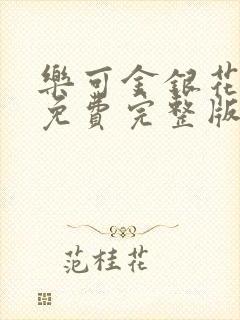 樂可金銀花
免費完整版
范桂花